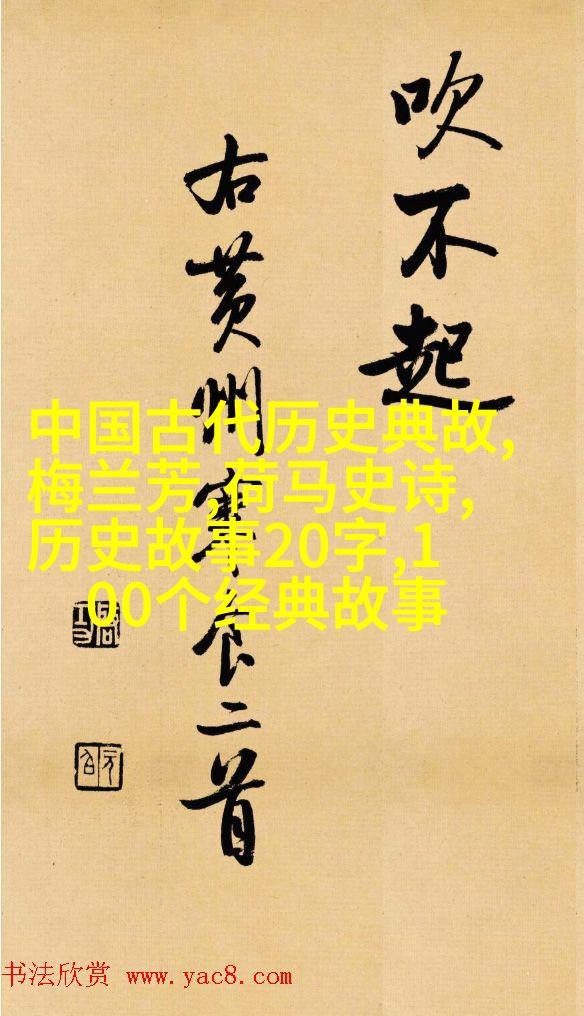 吹不起
右黄州寒食二首
中国古代历史典故,
梅兰芳,荷马史诗,
历史故事20字,1
00个经典故事
书法欣赏 www.yac8.com